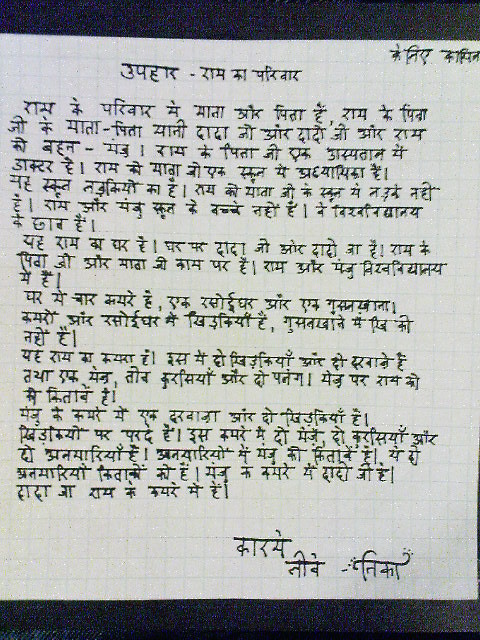 के लिए
उपहार - राम का परिवार
राम के परिवार में माता और पिता हैं, राम के पिता
जी के माता-पिता यानी दादा जी और दादी जी और राम
की बहन - मंजु। राम के पिता जी एक अस्पताल में
डाक्टर है। राम की माता जी एक स्कूल में अध्यापिका है।
यह स्कूल लड़कियों का है। राम की माता जी के स्कूल में लड़के नहीं
है। राम और मंजु स्कूल के बच्चे नहीं हैं। वे विश्वविद्यालय
के छात्र हैं।
यह राम का घर है। घर पर दादा जी और दादी जी है। राम के
पिता जी और माता जी काम पर हैं। राम और मंजु विश्वविद्यालय
में हैं।
घर में चार कमरे हैं, एक रसोईघर और एक गुसलखाना।
कमरों और रसोईघर में खिड़कियाँ हैं, गुसलखाने में
नहीं है।
यह राम का कमरा है। इस में दो खिड़कियाँ और दो दरवाज़े हैं
तथा एक मेज़, तीन कुरसियाँ और दो पलंग। मेज़ पर राम की
की किताबें हैं।
मंजु के कमरे में एक दरवाज़ा और दो खिड़कियाँ हैं।
खिड़कियों पर परदे हैं। इस कमरे में दो मेज़ें, दो कुरसियाँ और
दो अलमारियाँ हैं। अलमारियों में मंजु की किताबें हैं। ये दो
अलमारियाँ किताबों की हैं। मंजु के कमरे में दादी जी हैं।
दादा जी राम के कमरे में हैं।